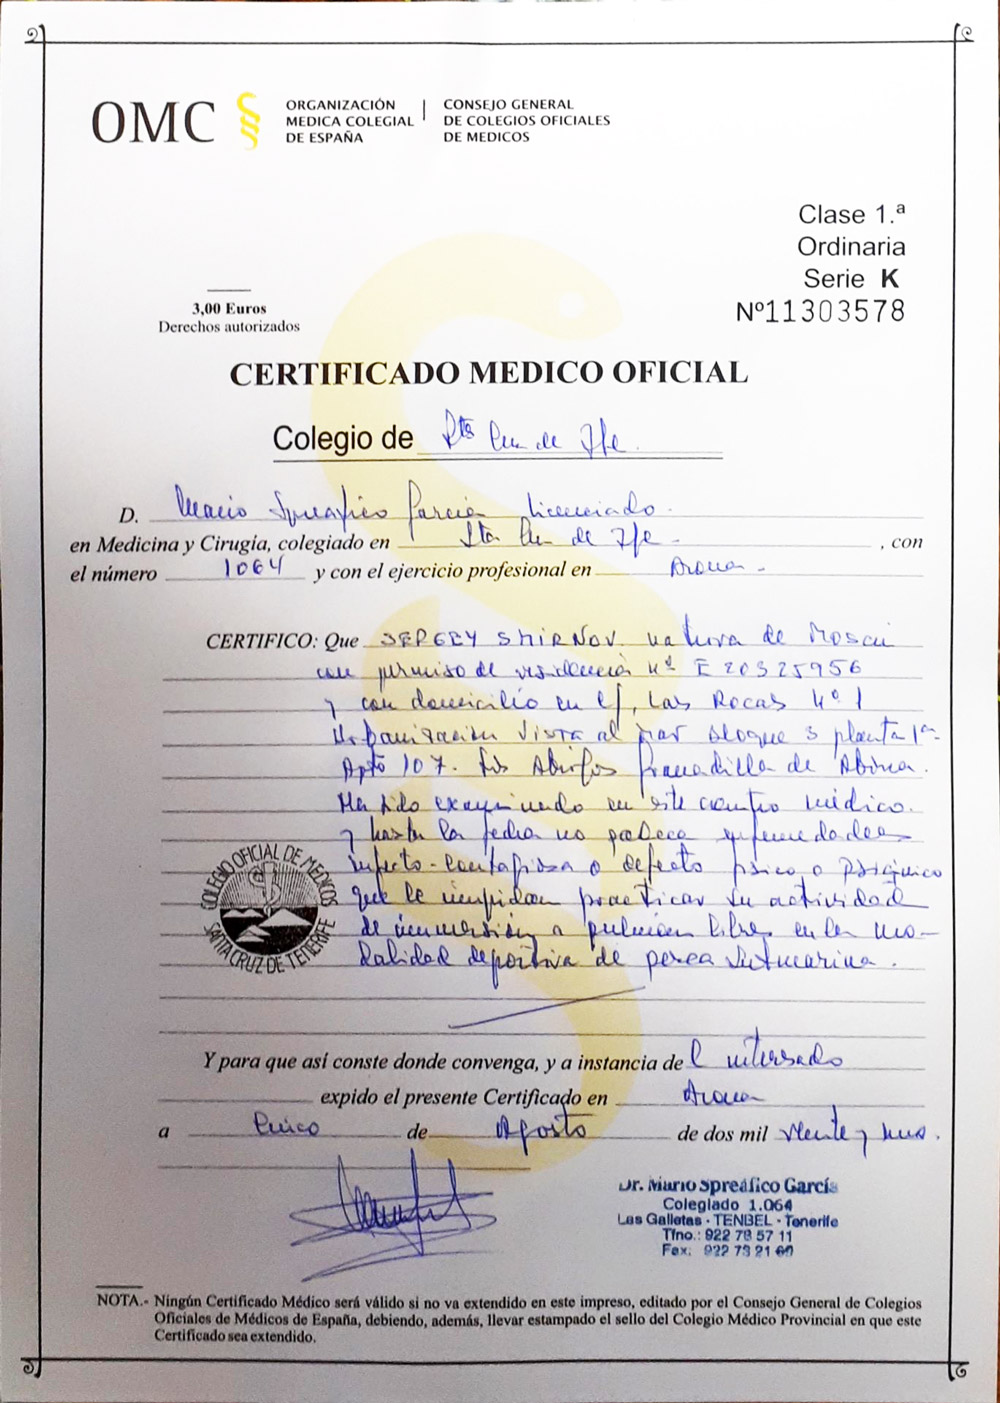 OMC
ORGANIZACIÓN
MEDICA COLEGIAL
DE ESPAÑA
CONSEJO GENERAL
DE COLEGIOS OFICIALES
DE MEDICOS
Clase 1.ª
Ordinaria
Serie K
Nº11303578
3,00 Euros
Derechos autorizados
CERTIFICADO MEDICO OFICIAL
Colegio de Sta Cruz de Tfe.
D. Mario Spreafico García Licenciado.
en Medicina y Cirugía, colegiado en Sta Cruz de Tfe. , con
el número 1064 y con el ejercicio profesional en Arona.
CERTIFICO: Que SERGEY SMIRNOV. natural de Moscú
con permiso de residencia nº E 20325956
y con domicilio en c/, Las Rocas nº 1
Urbanización Vista al mar Bloque 3 planta 1ª
Apto 107. Los Abrigos Granadilla de Abona.
Ha sido examinado en este centro médico.
y hasta la fecha no padece enfermedades
infecto-contagiosa o defecto físico o psíquico
que le impidan practicar su actividad
de inmersión a pulmón libre en la mo-
dalidad deportiva de pesca submarina.
COLEGIO OFICIAL DE MEDICOS
SANTA CRUZ DE TENERIFE
Y para que así conste donde convenga, y a instancia del interesado
expido el presente Certificado en Arona
a Cinco de Agosto de dos mil veinte y uno.
Dr. Mario Spreáfico García
Colegiado 1.064
Las Galletas - TENBEL - Tenerife
Tfno.: 922 78 57 11
Fax: 922 73 21
NOTA.- Ningún Certificado Médico será válido si no va extendido en este impreso, editado por el Consejo General de Colegios
Oficiales de Médicos de España, debiendo, además, llevar estampado el sello del Colegio Médico Provincial en que este
Certificado sea extendido.